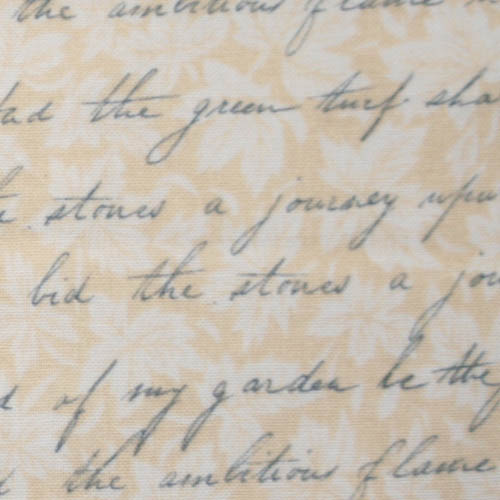 the ambitious flame
the green turf
stones a journey
bid the stones a
of my garden be the
the ambitious flame